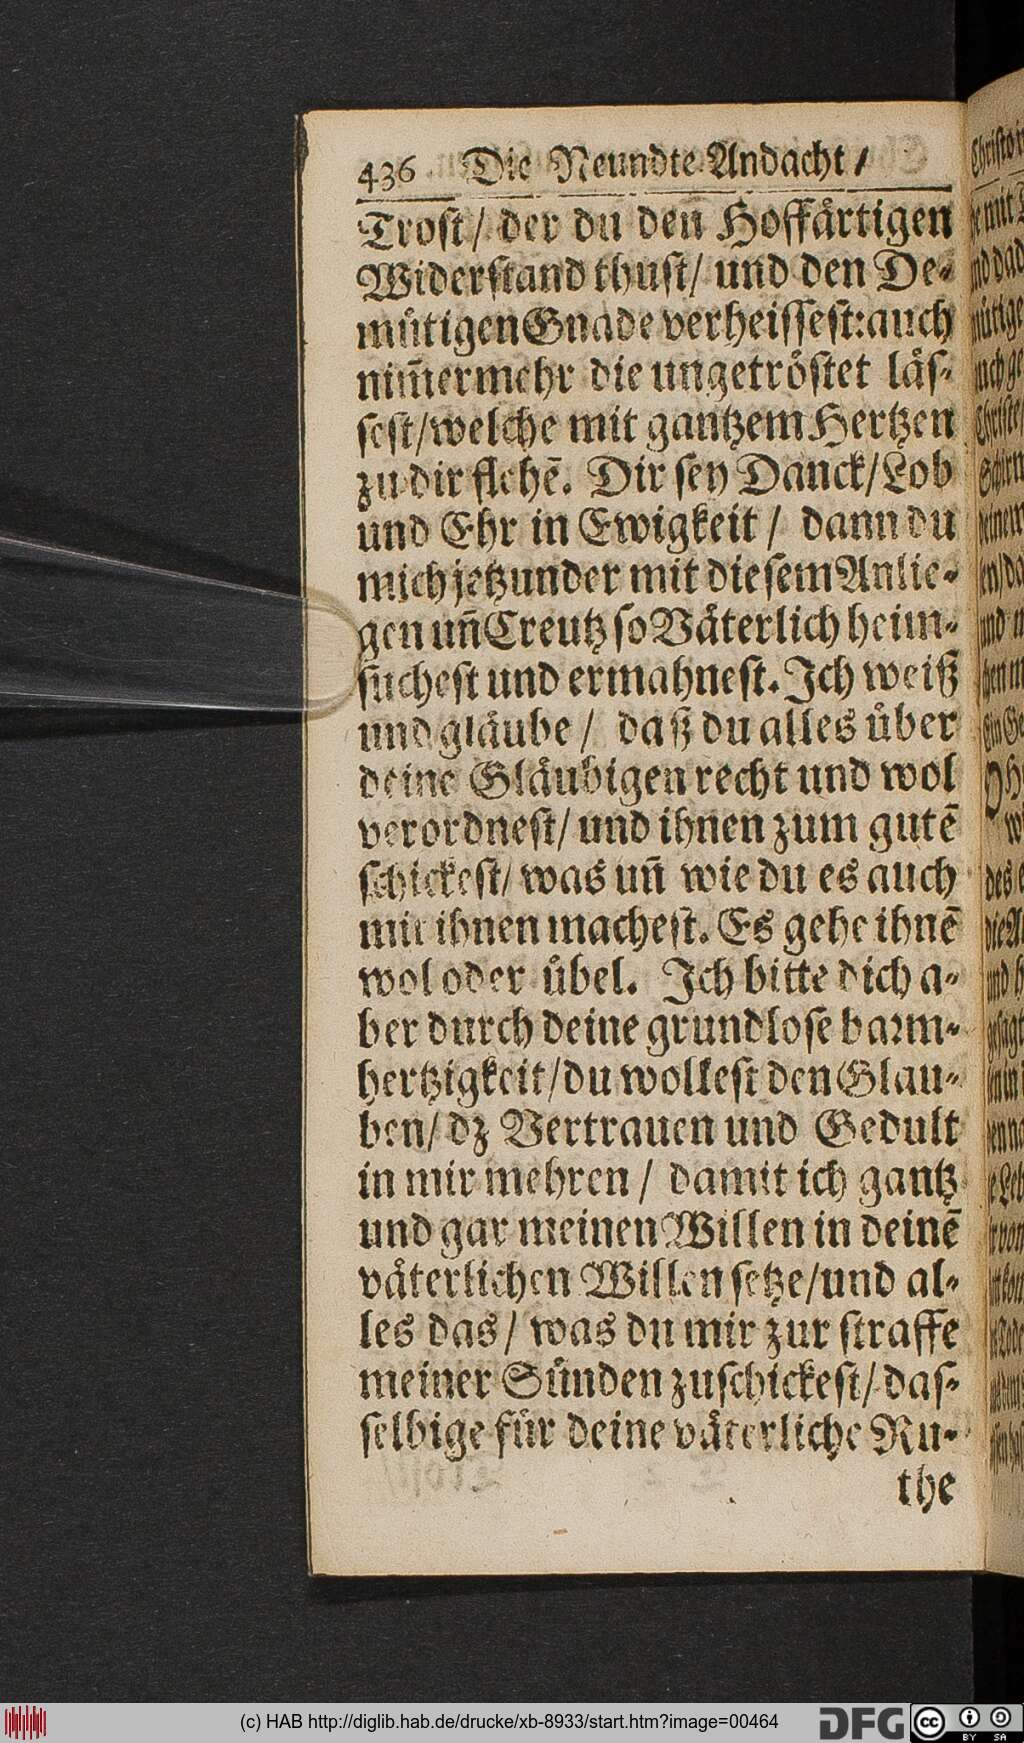 436 Die Neundte Andacht /
Trost / der du den Hoffaͤrtigen
Widerstand thust / und den De-
muͤtigen Gnade verheissest: auch
nim̃ermehr die ungetroͤstet laͤs-
sest / welche mit gantzem Hertzen
zu dir flehẽ. Dir sey Danck / Lob
und Ehr in Ewigkeit / dann du
mich jetzunder mit diesem Anlie-
gen uñ Creutz so Vaͤterlich heim-
suchest und ermahnest. Ich weiß
und glaͤube / daß du alles uͤber
deine Glaͤubigen recht und wol
verordnest / und ihnen zum gutẽ
schickest / was uñ wie du es auch
mit ihnen machest. Es gehe ihnẽ
wol oder uͤbel. Ich bitte dich a-
ber durch deine grundlose barm-
hertzigkeit / du wollest den Glau-
ben / dz Vertrauen und Gedult
in mir mehren / damit ich gantz
und gar meinen Willen in deinẽ
vaͤterlichen Willen setze / und al-
les das / was du mir zur straffe
meiner Suͤnden zuschickest / das-
selbige fuͤr deine vaͤterliche Ru-
the
(c) HAB http://diglib.hab.de/drucke/xb-8933/start.htm?image=00464
DFG cc BY SA